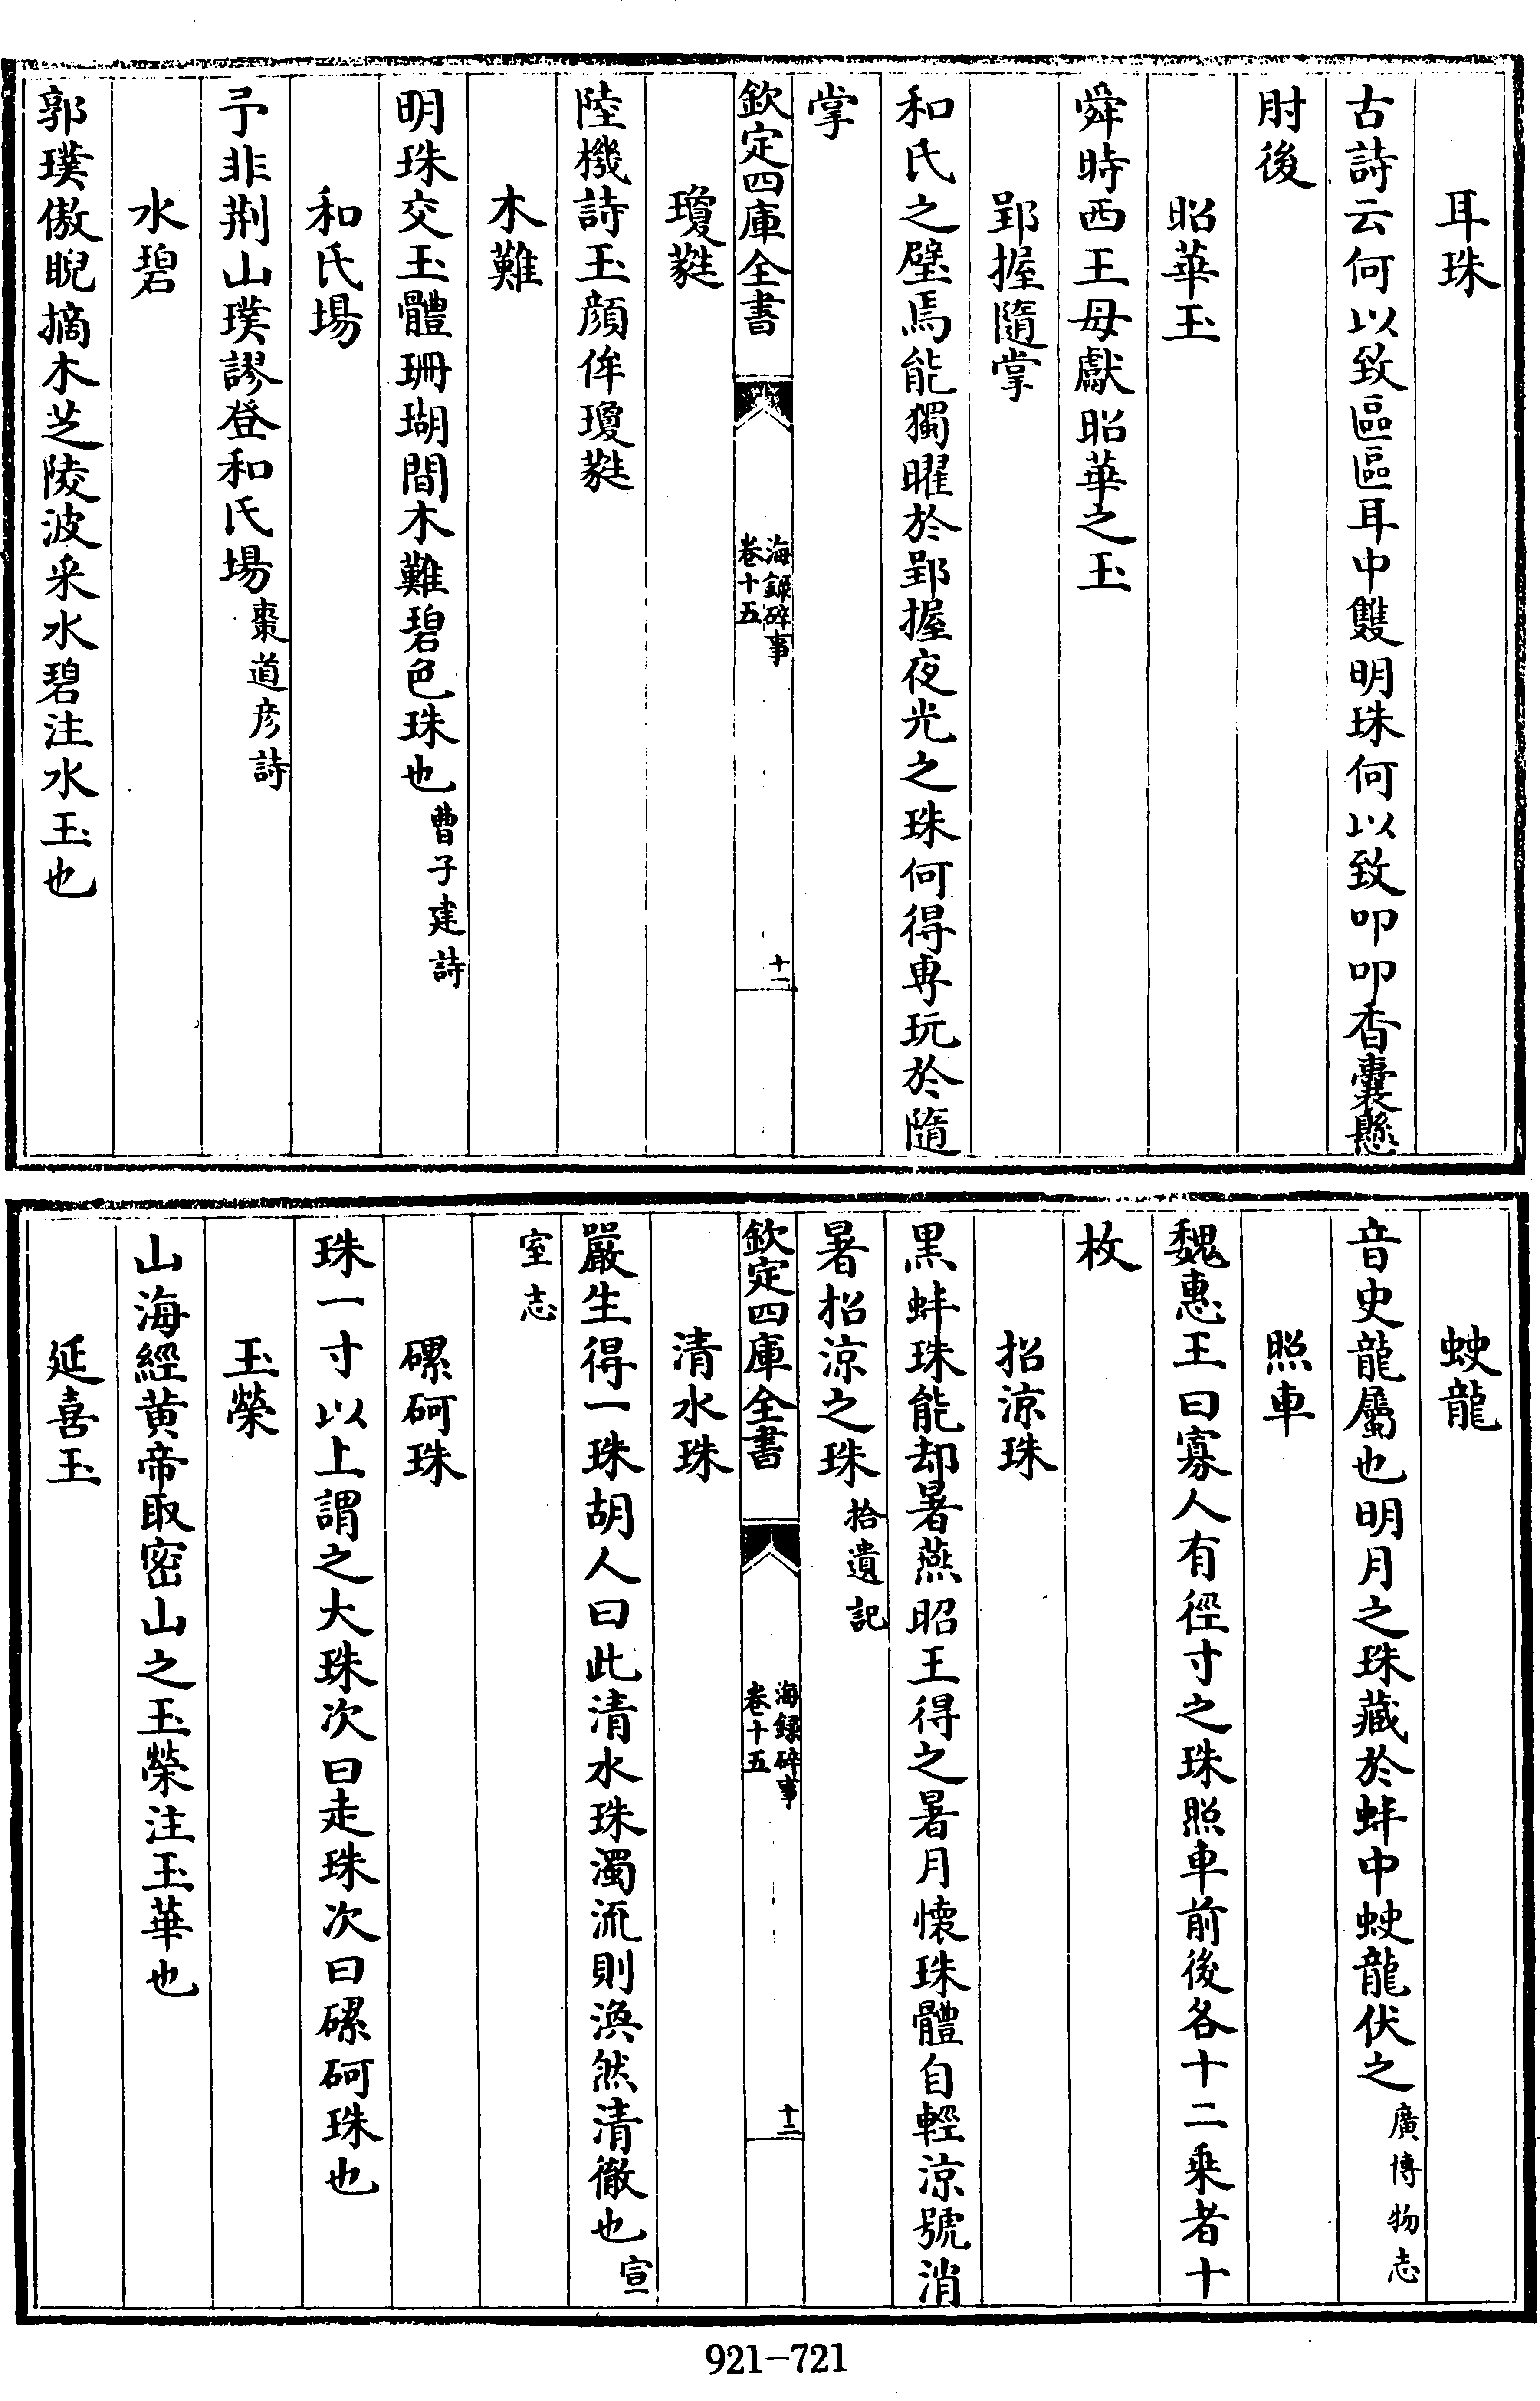 耳珠
古詩云何以致區區耳中雙明珠何以致叩叩香囊懸
肘後
昭華玉
舜時西王母獻昭華之玉
郢握隨掌
和氏之璧焉能獨曜於郢握夜光之珠何得專玩於隨
掌
欽定四庫全書
海錄碎事
卷十五
十一
瓊蕤
陸機詩玉顔侔瓊蕤
木難
明珠交玉體珊瑚間木難碧色珠也曹子建詩
和氏場
予非荆山璞謬登和氏場棗道彦詩
水碧
郭璞傲睨摘木芝陵波采水碧注水玉也
蛟龍
音史龍屬也明月之珠藏於蚌中蛟龍伏之廣博物志
照車
魏惠王曰寡人有徑寸之珠照車前後各十二乗者十
枚
招涼珠
黒蚌珠能却暑燕昭王得之暑月懷珠體自輕涼號消
暑招涼之珠拾遺記
欽定四庫全書
海錄碎事
卷十五
十二
清水珠
嚴生得一珠胡人曰此清水珠濁流則渙然清徹也宣
室志
磥砢珠
珠一寸以上謂之大珠次曰走珠次曰磥砢珠也
玉榮
山海經黄帝取密山之玉榮注玉華也
延喜玉
921-721